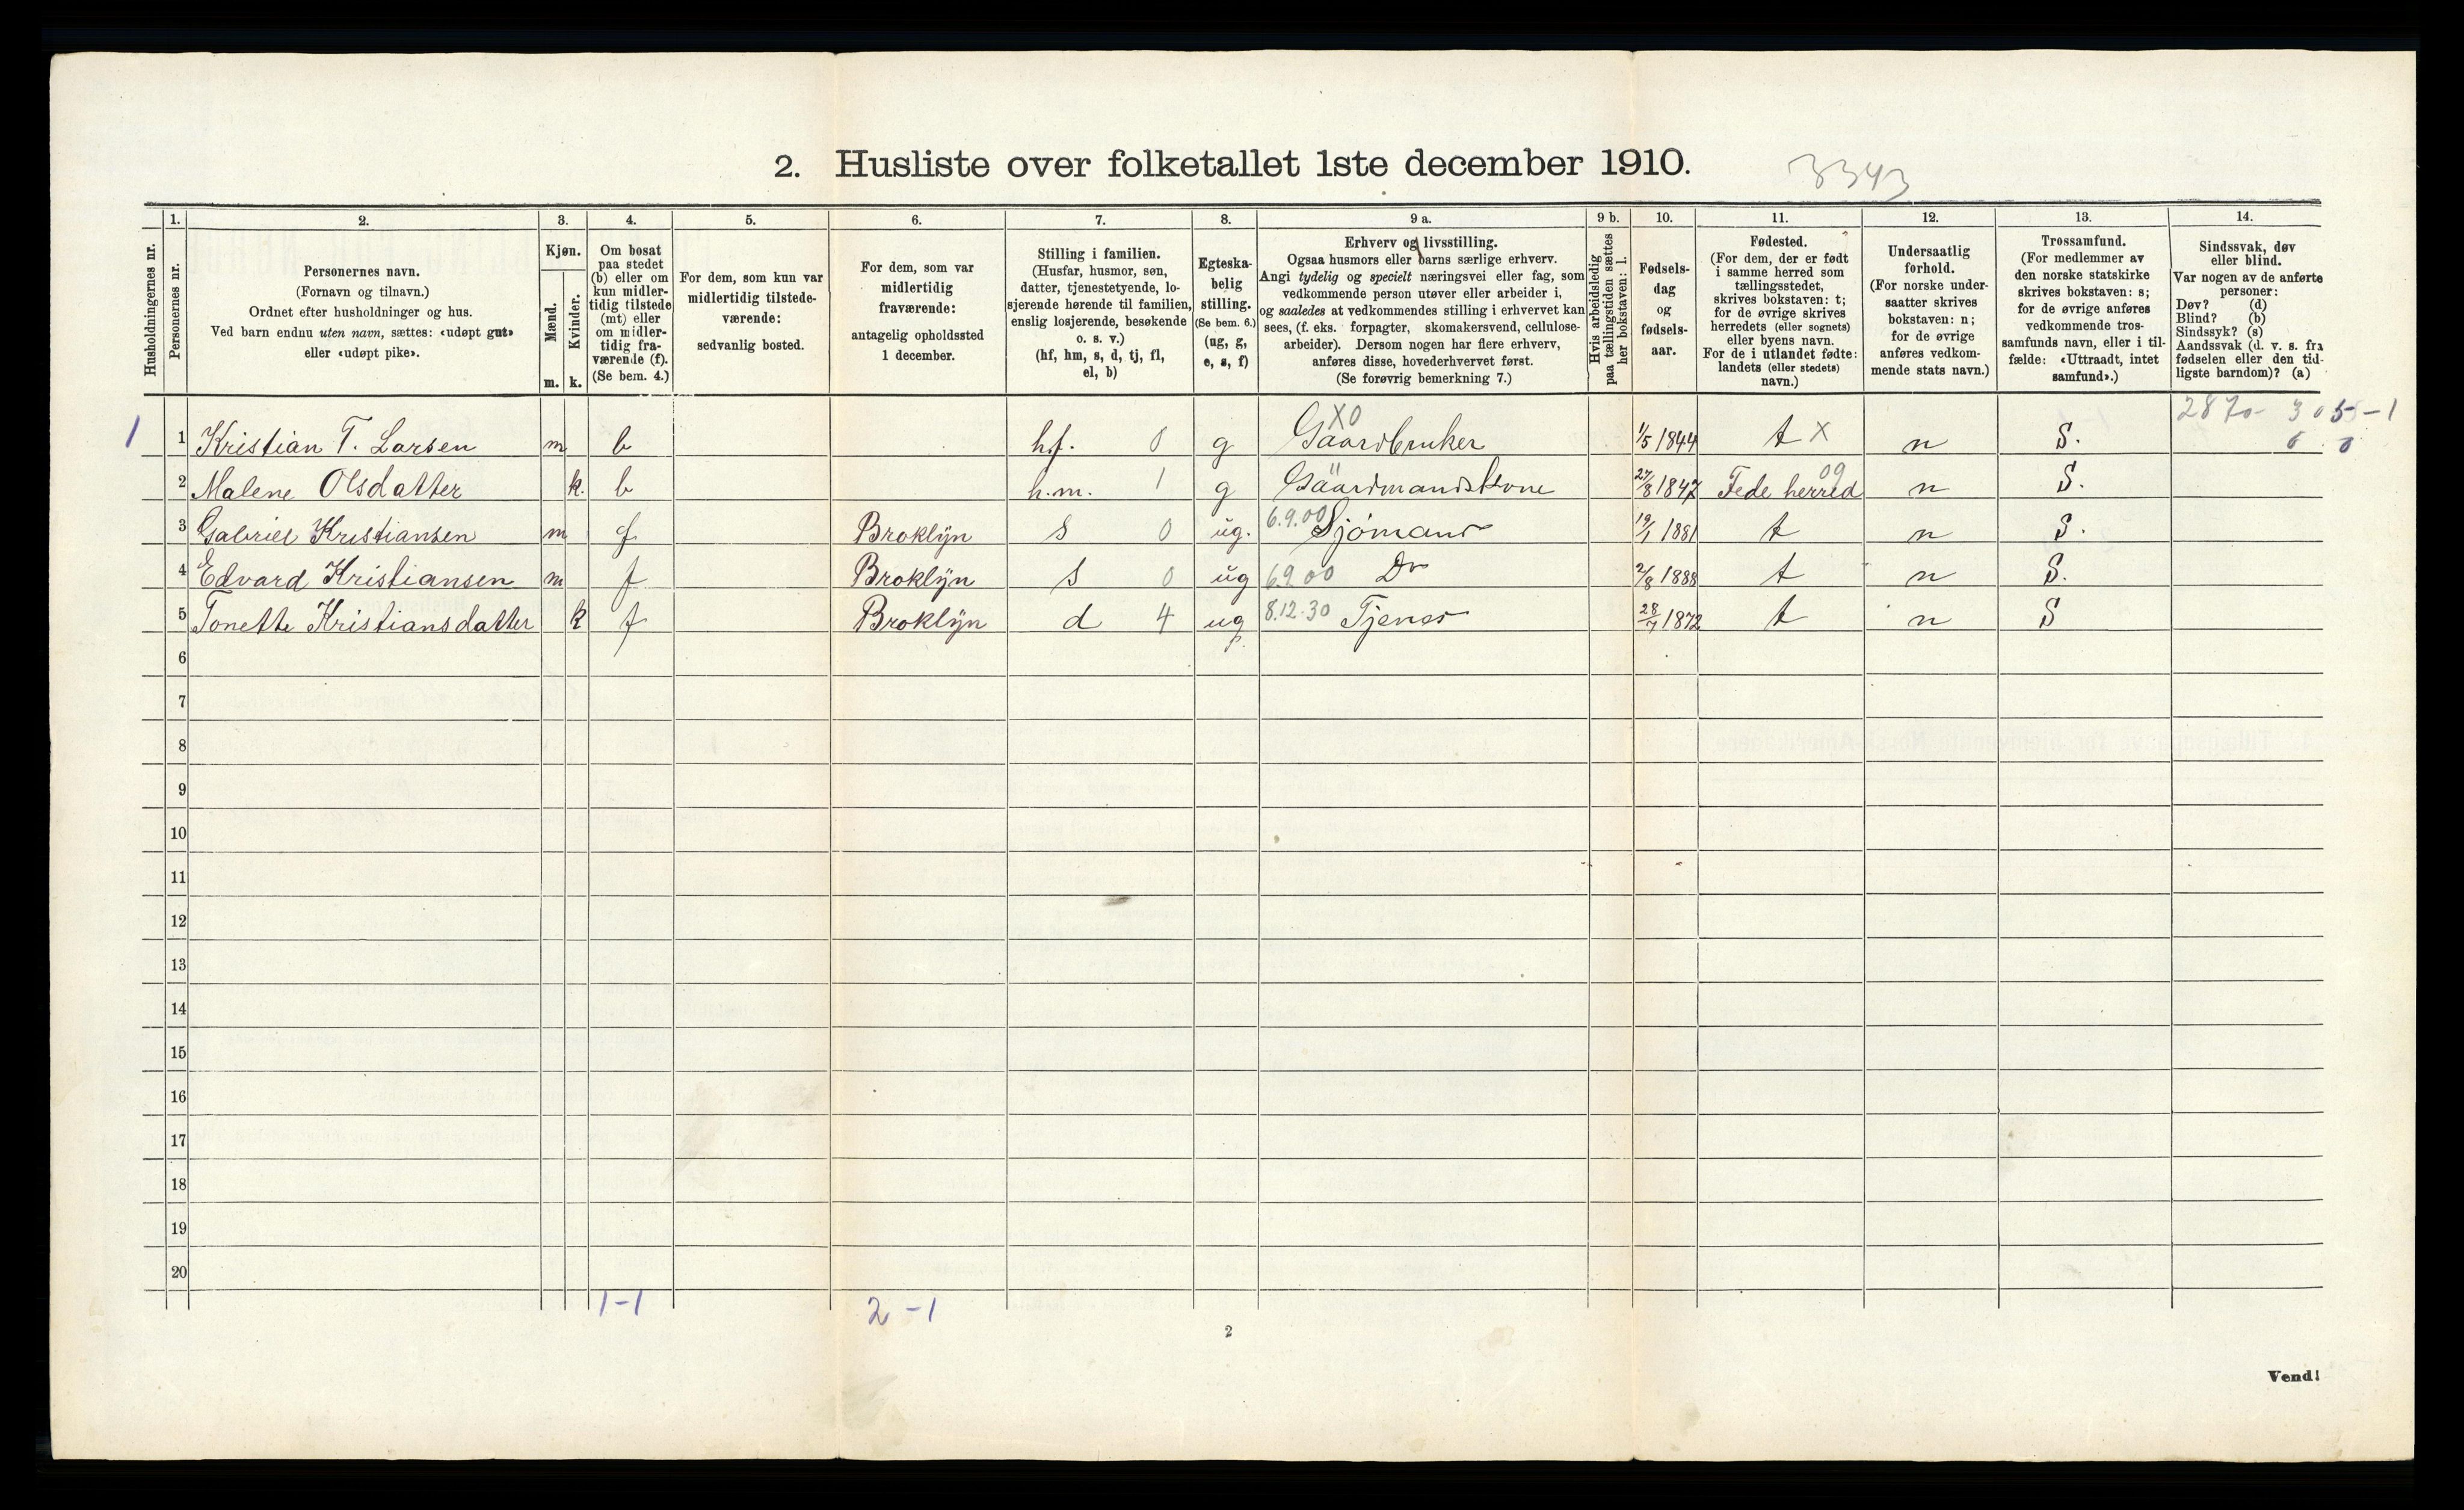 2. Husliste over folketallet 1ste december 1910.
3343
Husholdningernes nr.
1.
Personernes nr.
2.
Personernes navn.
(Fornavn og tilnavn.)
Ordnet efter husholdninger og hus.
Ved barn endnu uten navn, sættes: «udøpt gut»
eller «udøpt pike».
3.
Kjøn.
Mænd.
Kvinder.
m. k.
4.
Om bosat
paa stedet
(b) eller om
kun midler-
tidig tilstede
(mt) eller
om midler-
tidig fra-
værende (f).
(Se bem. 4.)
5.
For dem, som kun var
midlertidig tilstede-
værende:
sedvanlig bosted.
6.
For dem, som var
midlertidig
fraværende:
antagelig opholdssted
1 december.
7.
Stilling i familien.
(Husfar, husmor, søn,
datter, tjenestetyende, lo-
sjerende hørende til familien,
enslig losjerende, besøkende
o. s. v.)
(hf, hm, s, d, tj, fl,
el, b)
8.
Egteska-
belig
stilling.
(Se bem. 6.)
(ug, g,
e, s, f)
9 a.
Erhverv og livsstilling.
Ogsaa husmors eller barns særlige erhverv.
Angi tydelig og specielt næringsvei eller fag, som
vedkommende person utøver eller arbeider i,
og saaledes at vedkommendes stilling i erhvervet kan
sees, (f. eks. forpagter, skomakersvend, cellulose-
arbeider). Dersom nogen har flere erhverv,
anføres disse, hovederhvervet først.
(Se forøvrig bemerkning 7.)
9 b.
Hvis arbeidsledig
paa tællingstiden sættes
her bokstaven: l.
10.
Fødsels-
dag
og
fødsels-
aar.
11.
Fødested.
(For dem, der er født
i samme herred som
tællingsstedet,
skrives bokstaven: t;
for de øvrige skrives
herredets (eller sognets)
eller byens navn.
For de i utlandet fødte:
landets (eller stedets)
navn.)
12.
Undersaatlig
forhold.
(For norske under-
saatter skrives
bokstaven: n;
for de øvrige
anføres vedkom-
mende stats navn.)
13.
Trossamfund.
(For medlemmer av
den norske statskirke
skrives bokstaven: s;
for de øvrige anføres
vedkommende tros-
samfunds navn, eller i til-
fælde: «Uttraadt, intet
samfund».)
14.
Sindssvak, døv
eller blind.
Var nogen av de anførte
personer:
Døv? (d)
Blind? (b)
Sindssyk? (s)
Aandssvak (d. v. s. fra
fødselen eller den tid-
ligste barndom)? (a)
X0 2870- 305-1
1 1 Kristian T. Larsen m b hf. 0 g Gaardbruker 1/5 1844 t X n S. 0 0
2 Malene Olsdatter k. b h.m. 1 g Gaardmandskone 27/8 1847 Fede herred 09 n S.
3 Gabriel Kristiansen m f Broklyn s 0 ug. 6.9.00 Sjömand 19/1 1881 t n S.
4 Edvard Kristiansen m f Broklyn s 0 ug 6.9.00 Do 2/8 1888 t n S.
5 Tonette Kristiansdatter k f Broklyn d 4 ug 8.12.30 Tjener 28/7 1872 t n S
6
7
8
9
10
11
12
13
14
15
16
17
18
19
20
1-1 2-1
2
Vend!